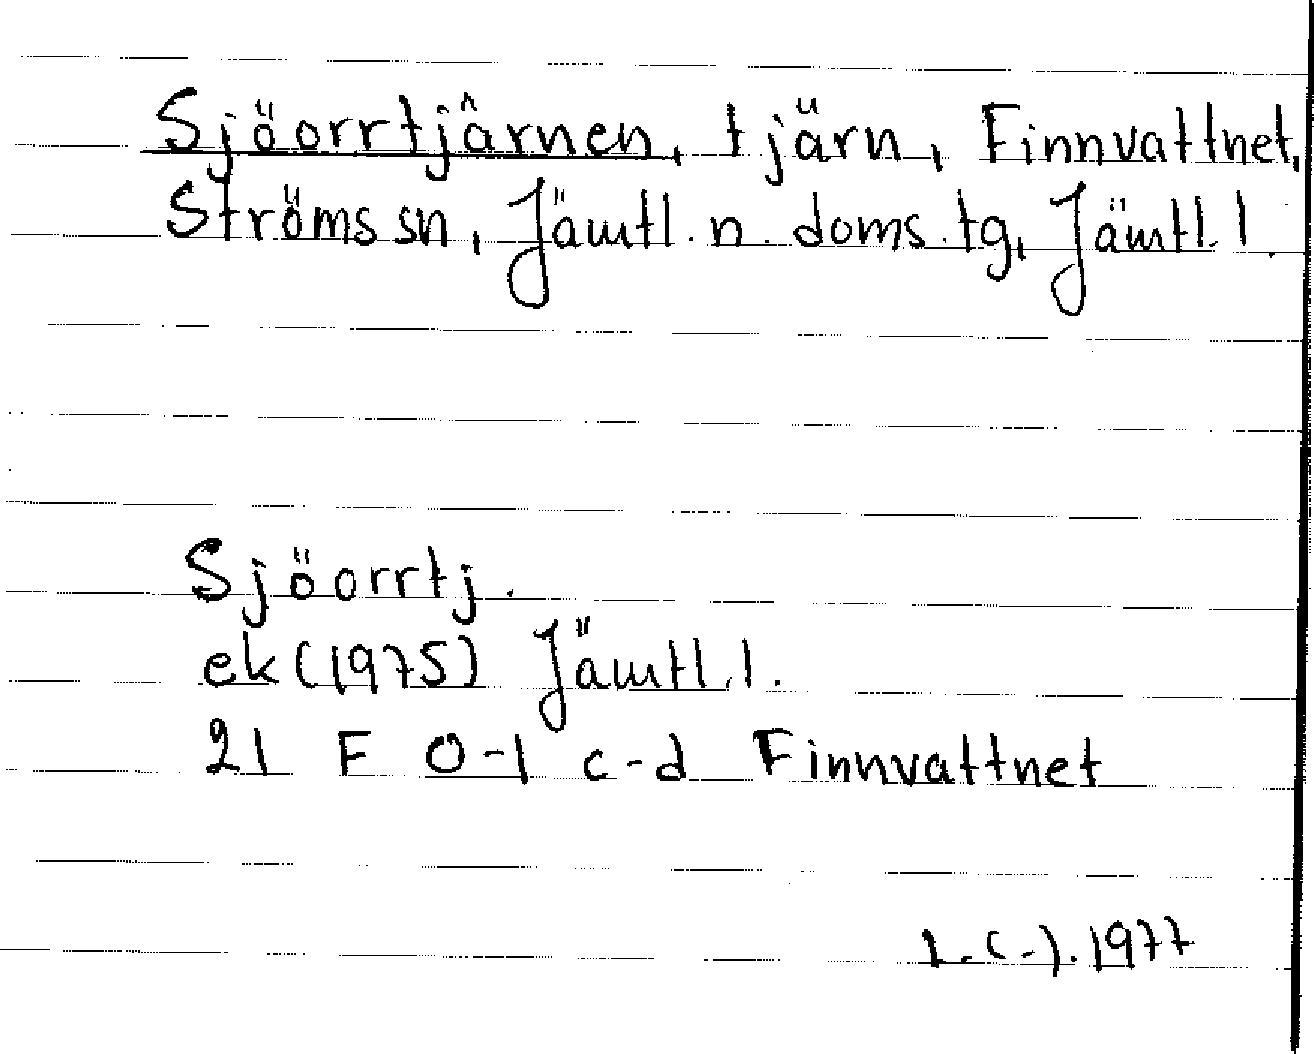 Sjöorrtjärnen, tjärn, Finnvattnet,
Ströms sn, Jämtl. n. doms. tg, Jämtl. l.
Sjöorrtj.
ek (1975) Jämtl. l.
21 F 0-1 c-d Finnvattnet
1977